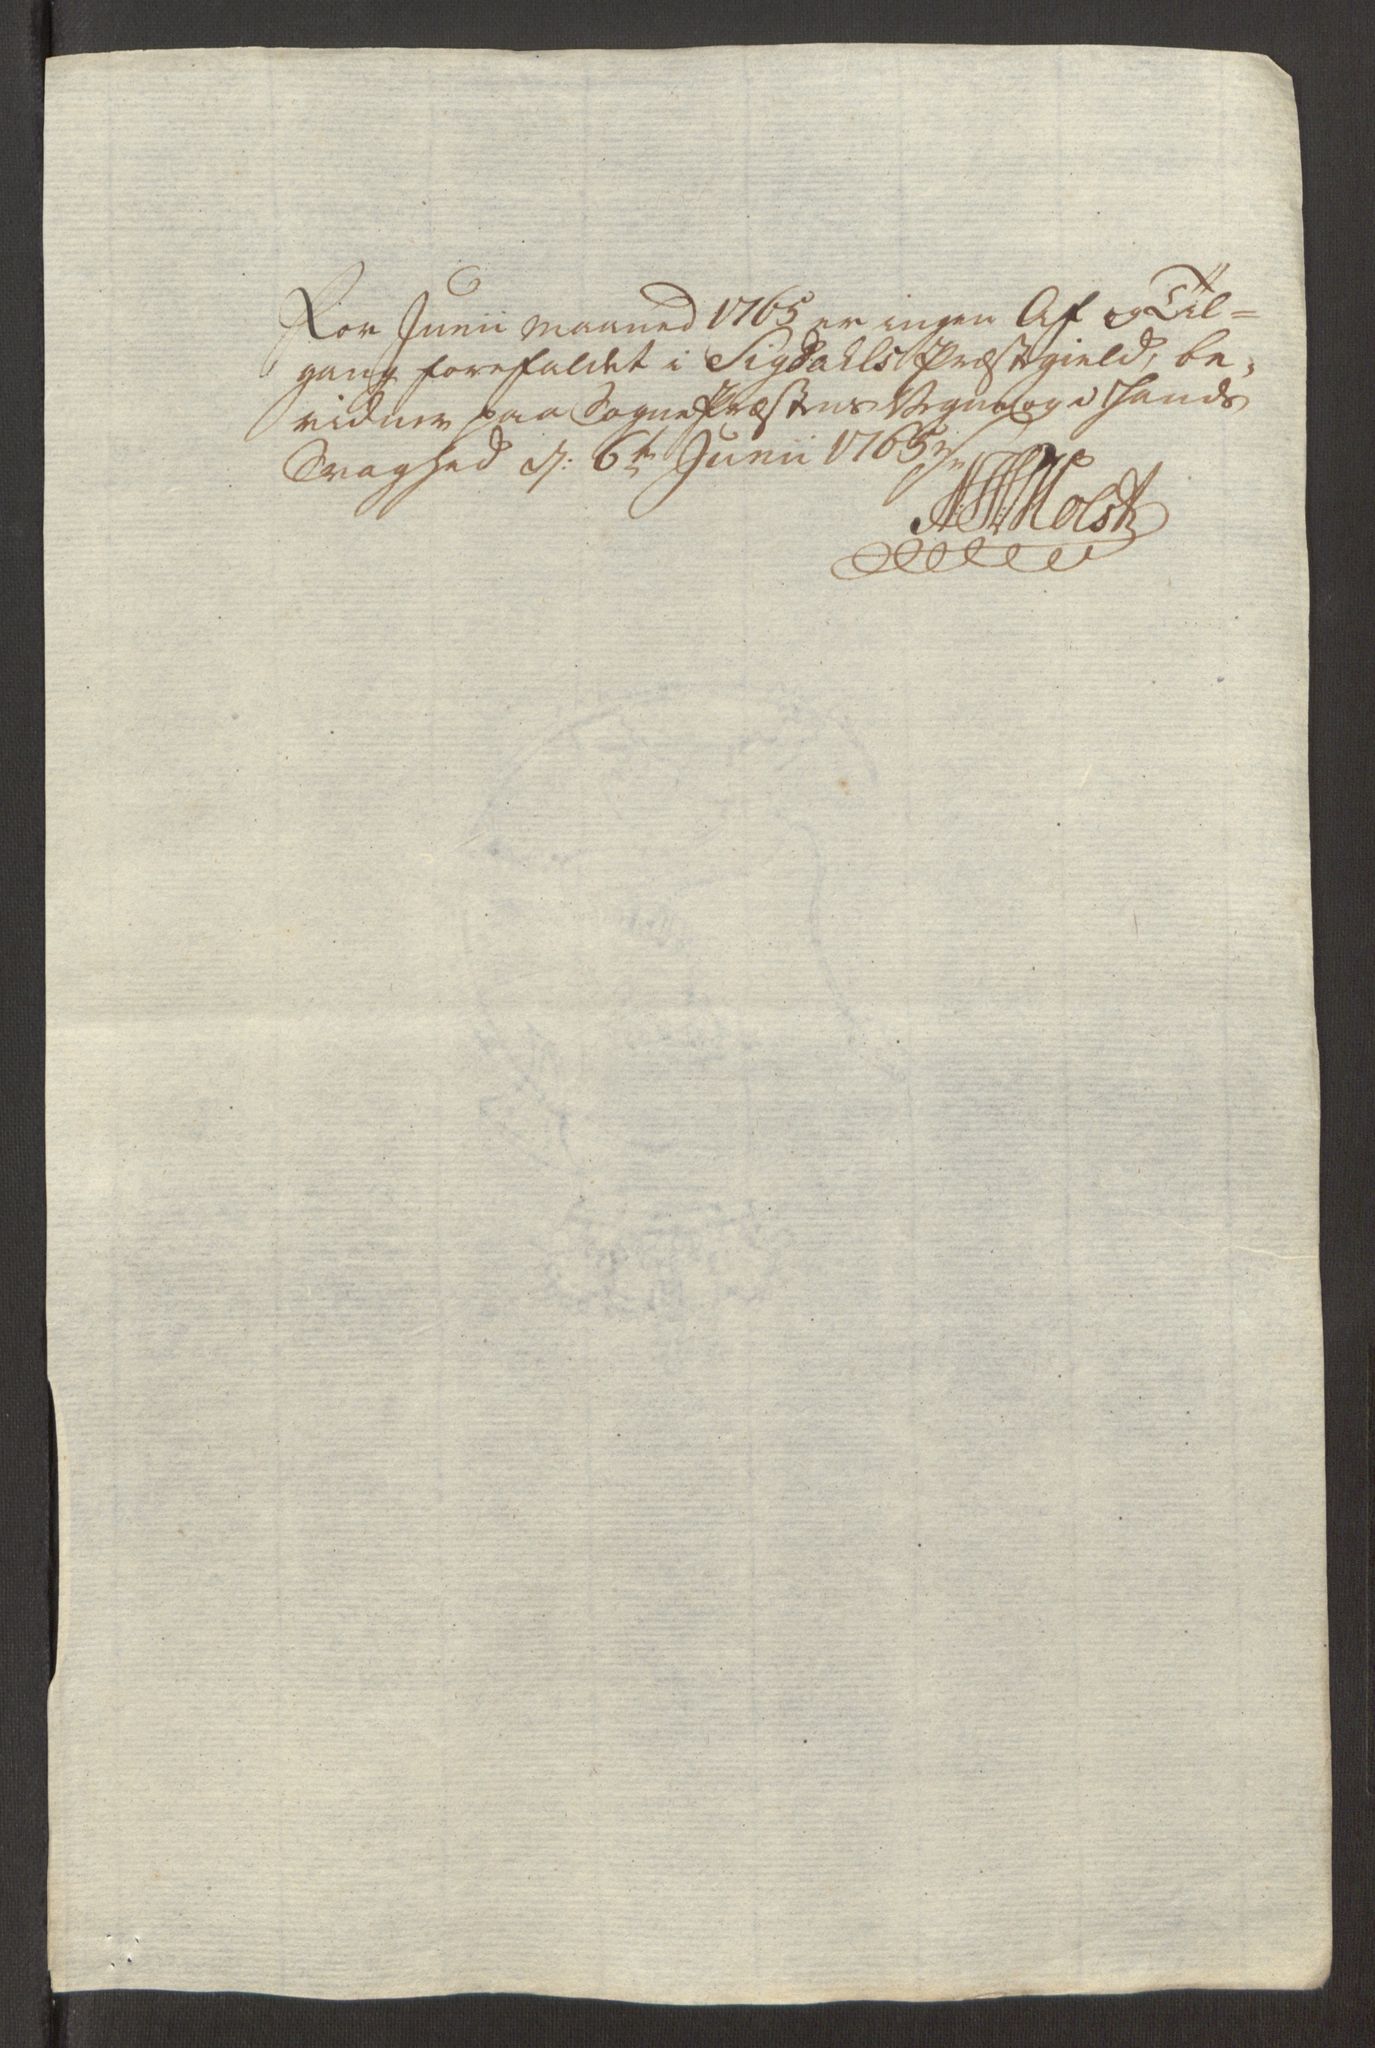 For Junii Maaned 1765 er ingen Af og Til-
gang forefaldet i Sigdahls Præstegield, be-
vidner paa Sogne Præstens Vegne og i Hands
Svaghed d: 6te Junii 1765
Holst